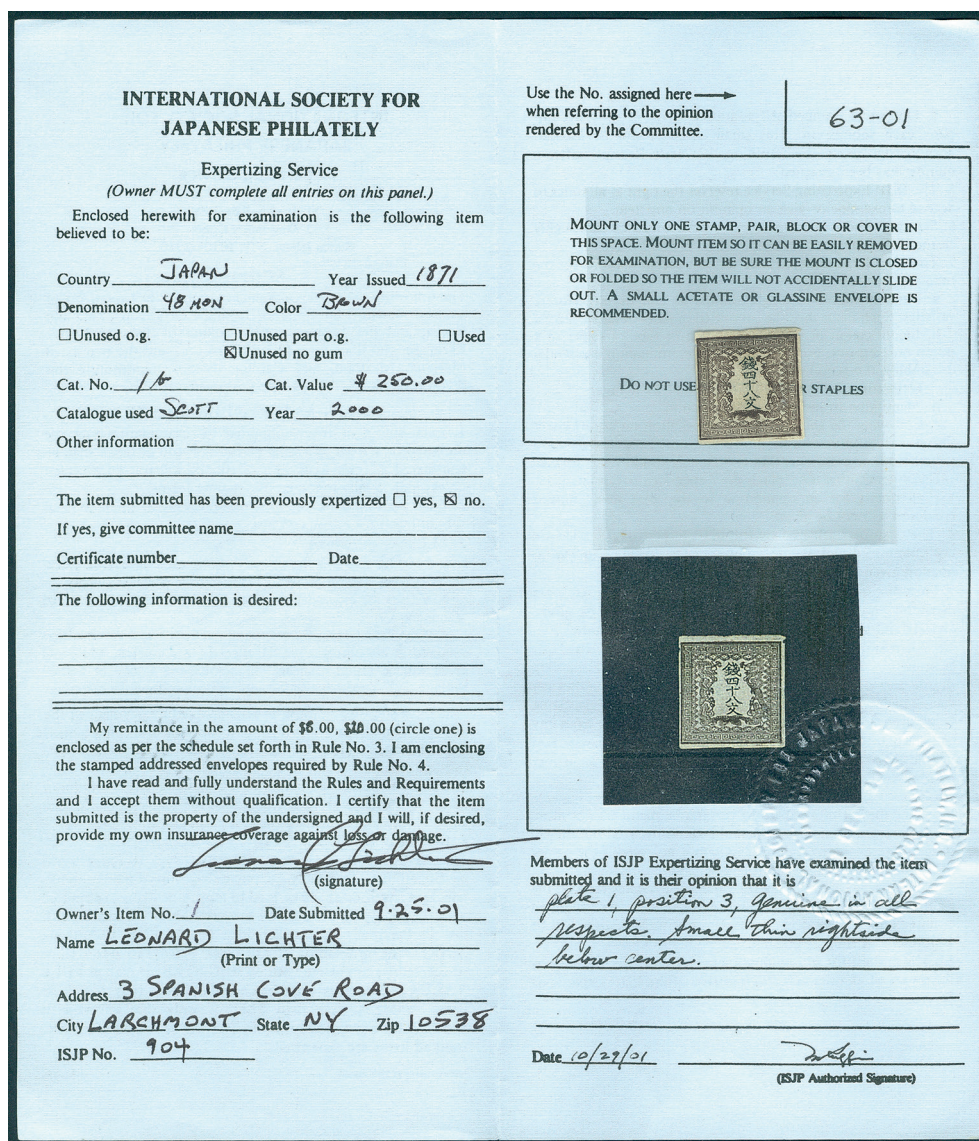 INTERNATIONAL SOCIETY FOR
JAPANESE PHILATELY
Expertizing Service
(Owner MUST complete all entries on this panel.)
Enclosed herewith for examination is the following item
believed to be:
Country JAPAN Year Issued 1871
Denomination 48 MON Color BROWN
☐Unused o.g. ☐Unused part o.g. ☐Used
☒Unused no gum
Cat. No. 1b Cat. Value $ 250.00
Catalogue used SCOTT Year 2000
Other information
The item submitted has been previously expertized ☐ yes, ☒ no.
If yes, give committee name
Certificate number Date
The following information is desired:
My remittance in the amount of $8.00, $10.00 (circle one) is
enclosed as per the schedule set forth in Rule No. 3. I am enclosing
the stamped addressed envelopes required by Rule No. 4.
I have read and fully understand the Rules and Requirements
and I accept them without qualification. I certify that the item
submitted is the property of the undersigned and I will, if desired,
provide my own insurance coverage against loss or damage.
(signature)
Owner's Item No. 1 Date Submitted 9.25.01
Name LEONARD LICHTER
(Print or Type)
Address 3 SPANISH COVE ROAD
City LARCHMONT State NY Zip 10538
ISJP No. 904
Use the No. assigned here
when referring to the opinion
rendered by the Committee.
63-01
MOUNT ONLY ONE STAMP, PAIR, BLOCK OR COVER IN
THIS SPACE. MOUNT ITEM SO IT CAN BE EASILY REMOVED
FOR EXAMINATION, BUT BE SURE THE MOUNT IS CLOSED
OR FOLDED SO THE ITEM WILL NOT ACCIDENTALLY SLIDE
OUT. A SMALL ACETATE OR GLASSINE ENVELOPE IS
RECOMMENDED.
DO NOT USE R STAPLES
錢四十八文
錢四十八文
Members of ISJP Expertizing Service have examined the item
submitted and it is their opinion that it is
plate 1, position 3, genuine in all
respects. Small thin rightside
below center.
Date 10/29/01
(ISJP Authorized Signature)